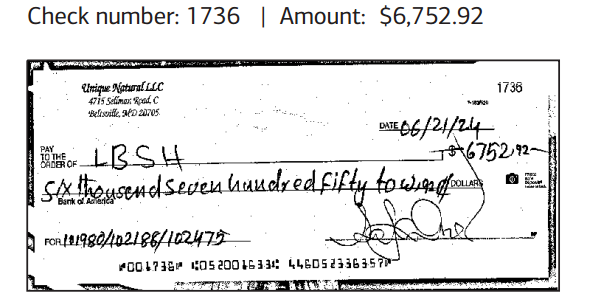 Check number: 1736 | Amount: $6,752.92
Unique Natural LLC
4715 Sellman Road, C
Beltsville, MD 20705
1736
DATE 06/21/24
PAY TO THE ORDER OF LBSH $ 6752,92
Six thousand seven hundred fifty to w, 92/ DOLLARS
Bank of America
FOR 101980/102188/102475
⑈001736⑈ ⑆052001633⑆ 446052336357⑈